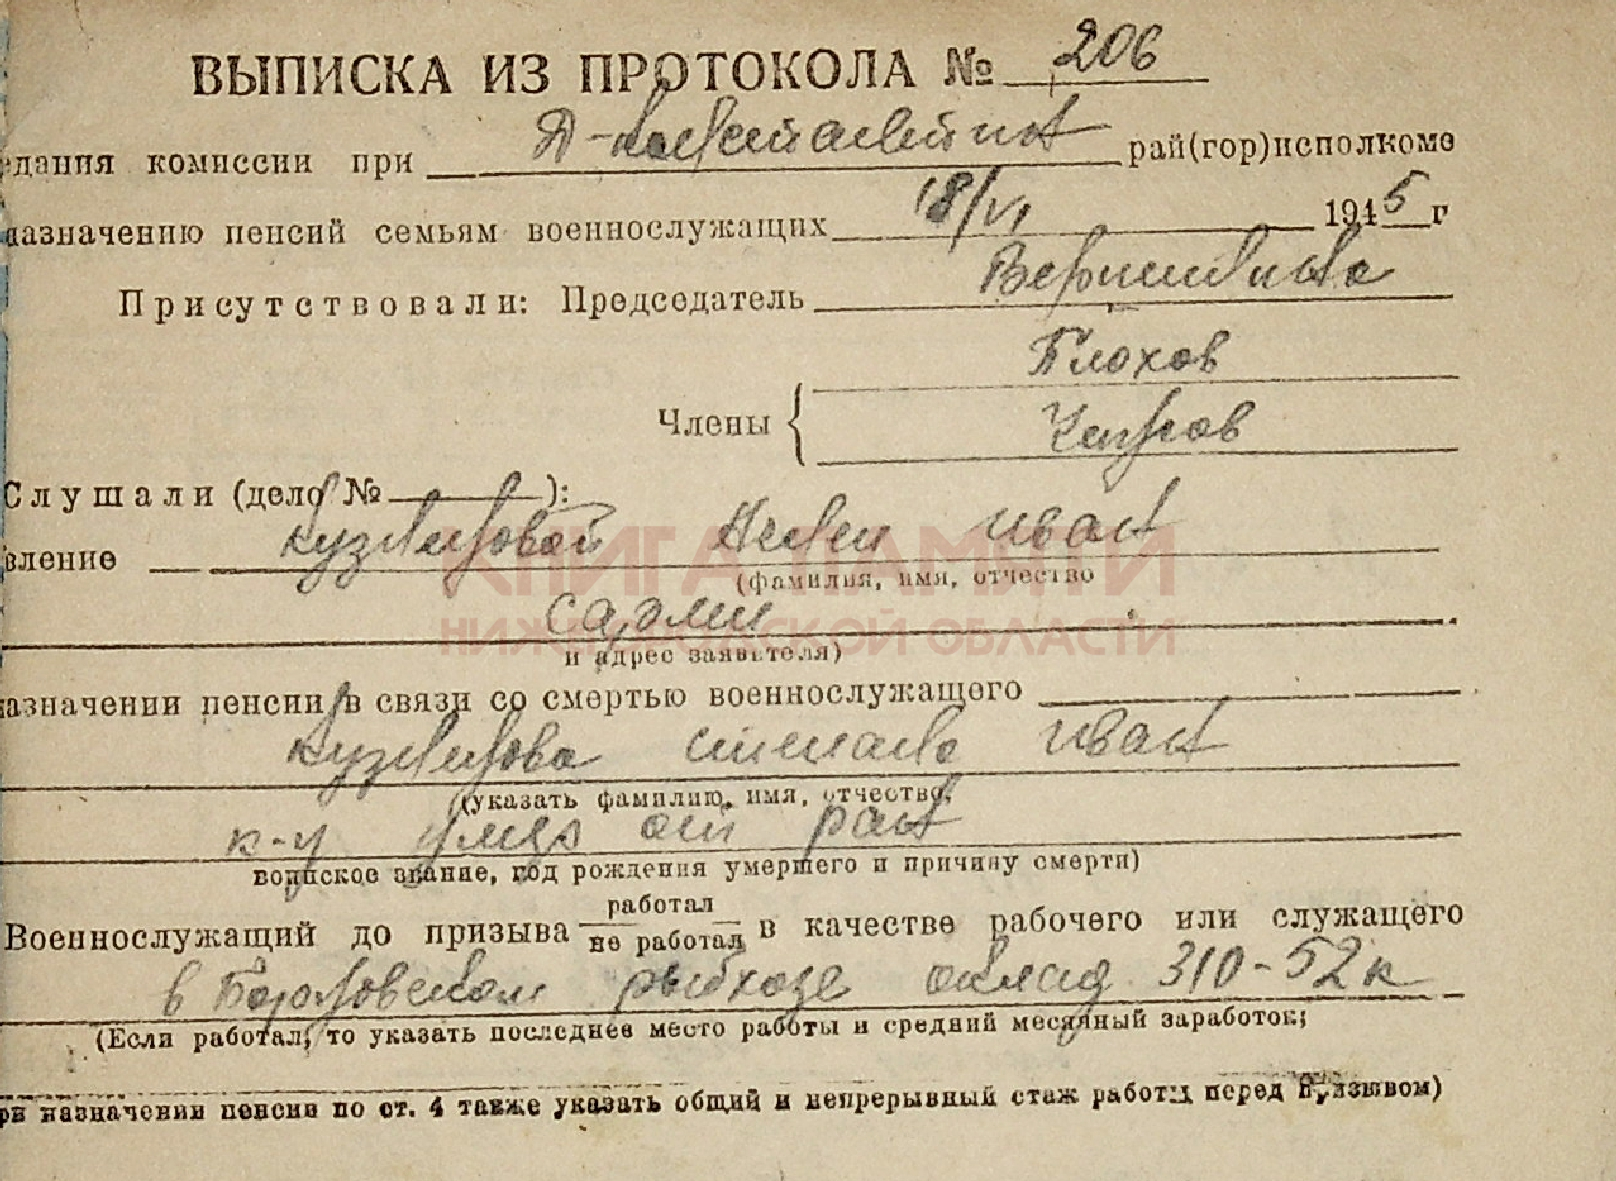 ВЫПИСКА ИЗ ПРОТОКОЛА № 206
едания комиссии при Д-Константин рай(гор)исполкоме
назначению пенсий семьям военнослужащих 18/VI 1945 г
Присутствовали: Председатель Вершинина
Блохов
Члены
Слушали (дело № ):
вление Кузнецовой Иван
КНИГА ПАМЯТИ
(фамилия, имя, отчество
Сарли
НИЖЕГОРОДСКОЙ ОБЛАСТИ
и адрес заявителя)
назначении пенсии в связи со смертью военнослужащего
Кузнецова Степана Иван
(указать фамилию, имя, отчество,
к-ц умер от ран
воинское звание, год рождения умершего и причину смерти)
Военнослужащий до призыва работал / не работал в качестве рабочего или служащего
в рыбхозе оклад 310-52к
(Если работал, то указать последнее место работы и средний месячный заработок;
ри назначении пенсии по ст. 4 также указать общий и непрерывный стаж работы перед призывом)